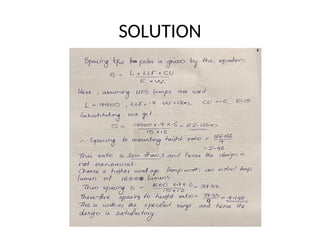 SOLUTION
Spacing b/w the poles is given by the equation
S = L × LLF × CU
E × W
Here, assuming HPS lamps are used
L = 9500, LLF = .7 W = 12m, CU = .6, E = 15
Substituting we get.
S = 9500 × .7 × .6 = 22.166m
15 × 12
∴ Spacing to mounting height ratio = 22.166
9
= 2.46.
This ratio is less than 3 and hence the design is
not economical.
Choose a higher wattage lamp with an initial lamp
lumen of 16000 lumens.
Then spacing S = × .7 × .6 = 37.33
15 × 12
Therefore spacing to height ratio = 37.33 = 4.148
9
This is within the specified range and hence the
design is satisfactory.